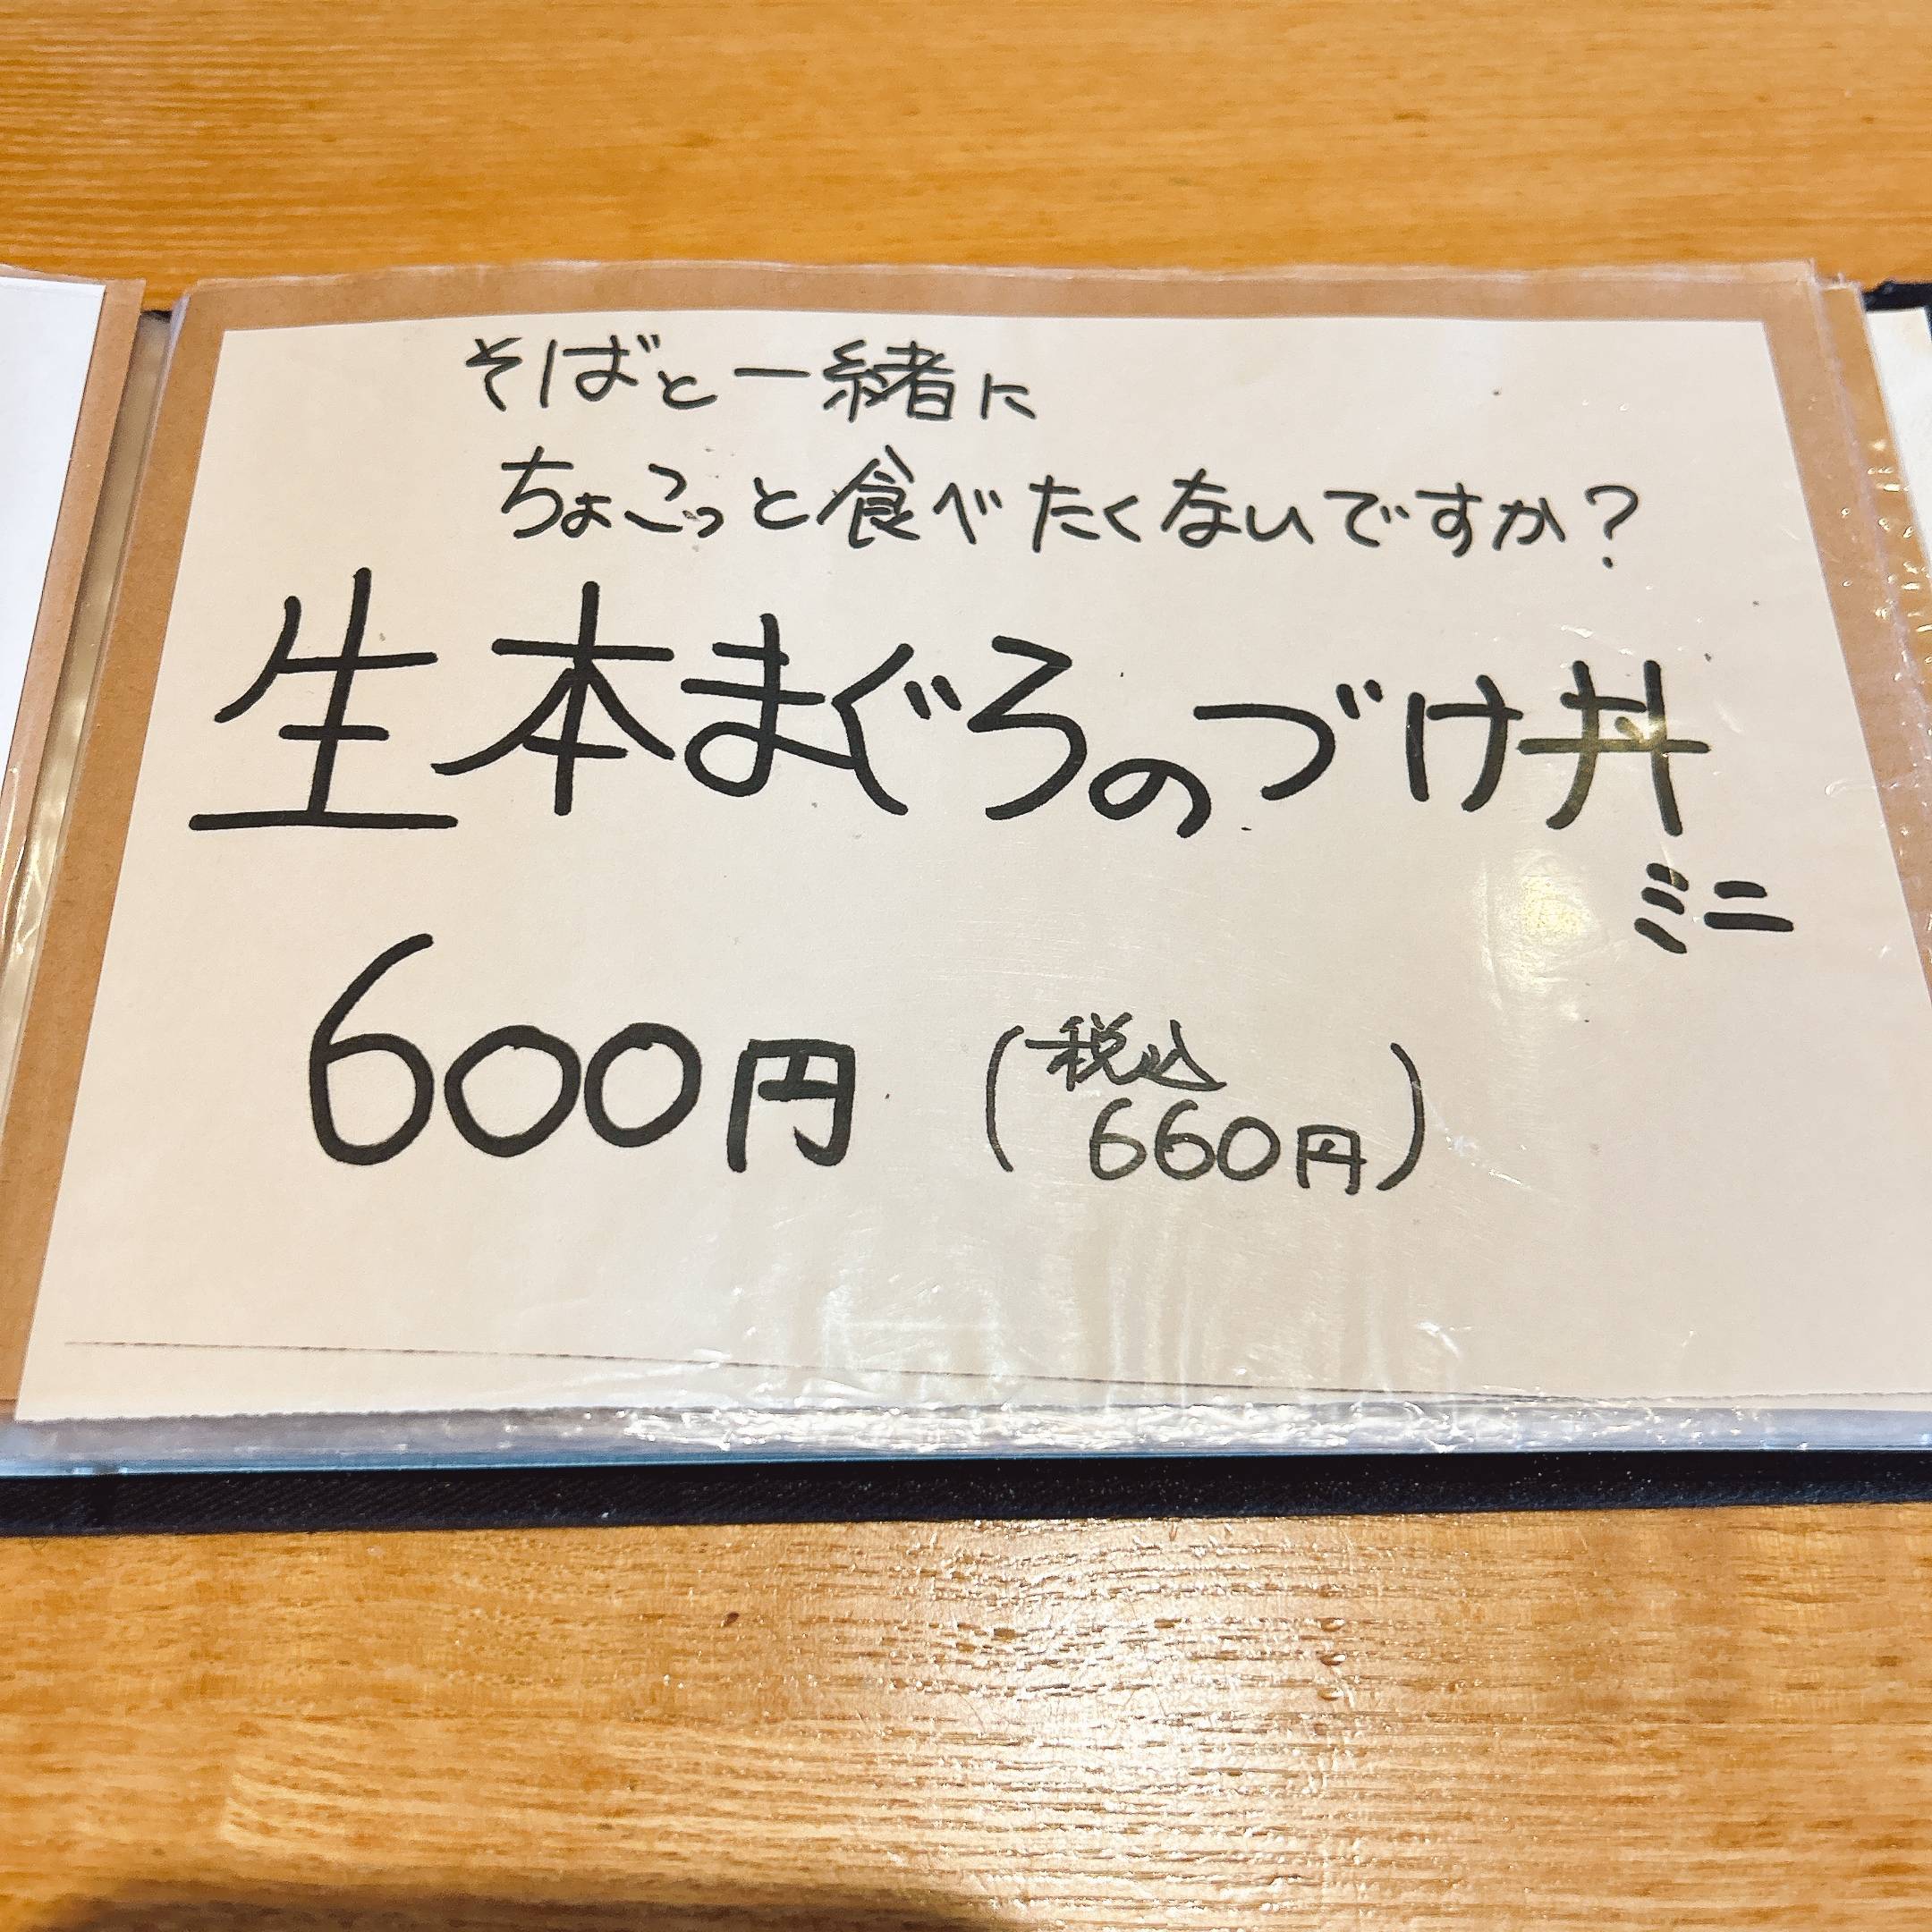 そばと一緒に
ちょこっと食べたくないですか？
生本まぐろのづけ丼
ミニ
600円 (税込
660円)